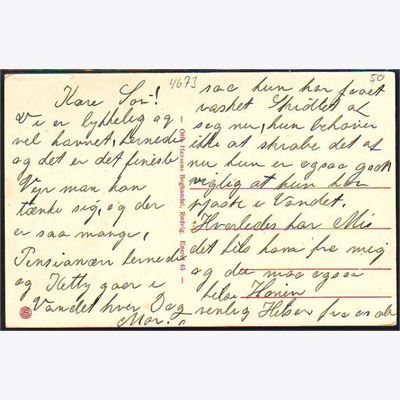 4673
50
Kære Sos!
Vi er lykkelig og
vel havnet, hernede
og det er det fineste
Vejr man kan
tænke sig, og der
er saa mange,
Pensionær hernede
og Ketty gaar i
Vandet hver Dag
Mor.
Otto Hansens Boghandel, Rødvig. Eneret 45
saa hun har faaet
vasket Skidtet af
seg nu, hun behøver
ikke at skrabe det af
nu hun er ogsaa godt
at hun kan
pjaske i Vandet.
Hvorledes har Mis
det hils ham fra mig
og du maa ogsaa
hilse
venlig Hilsen fra os alle